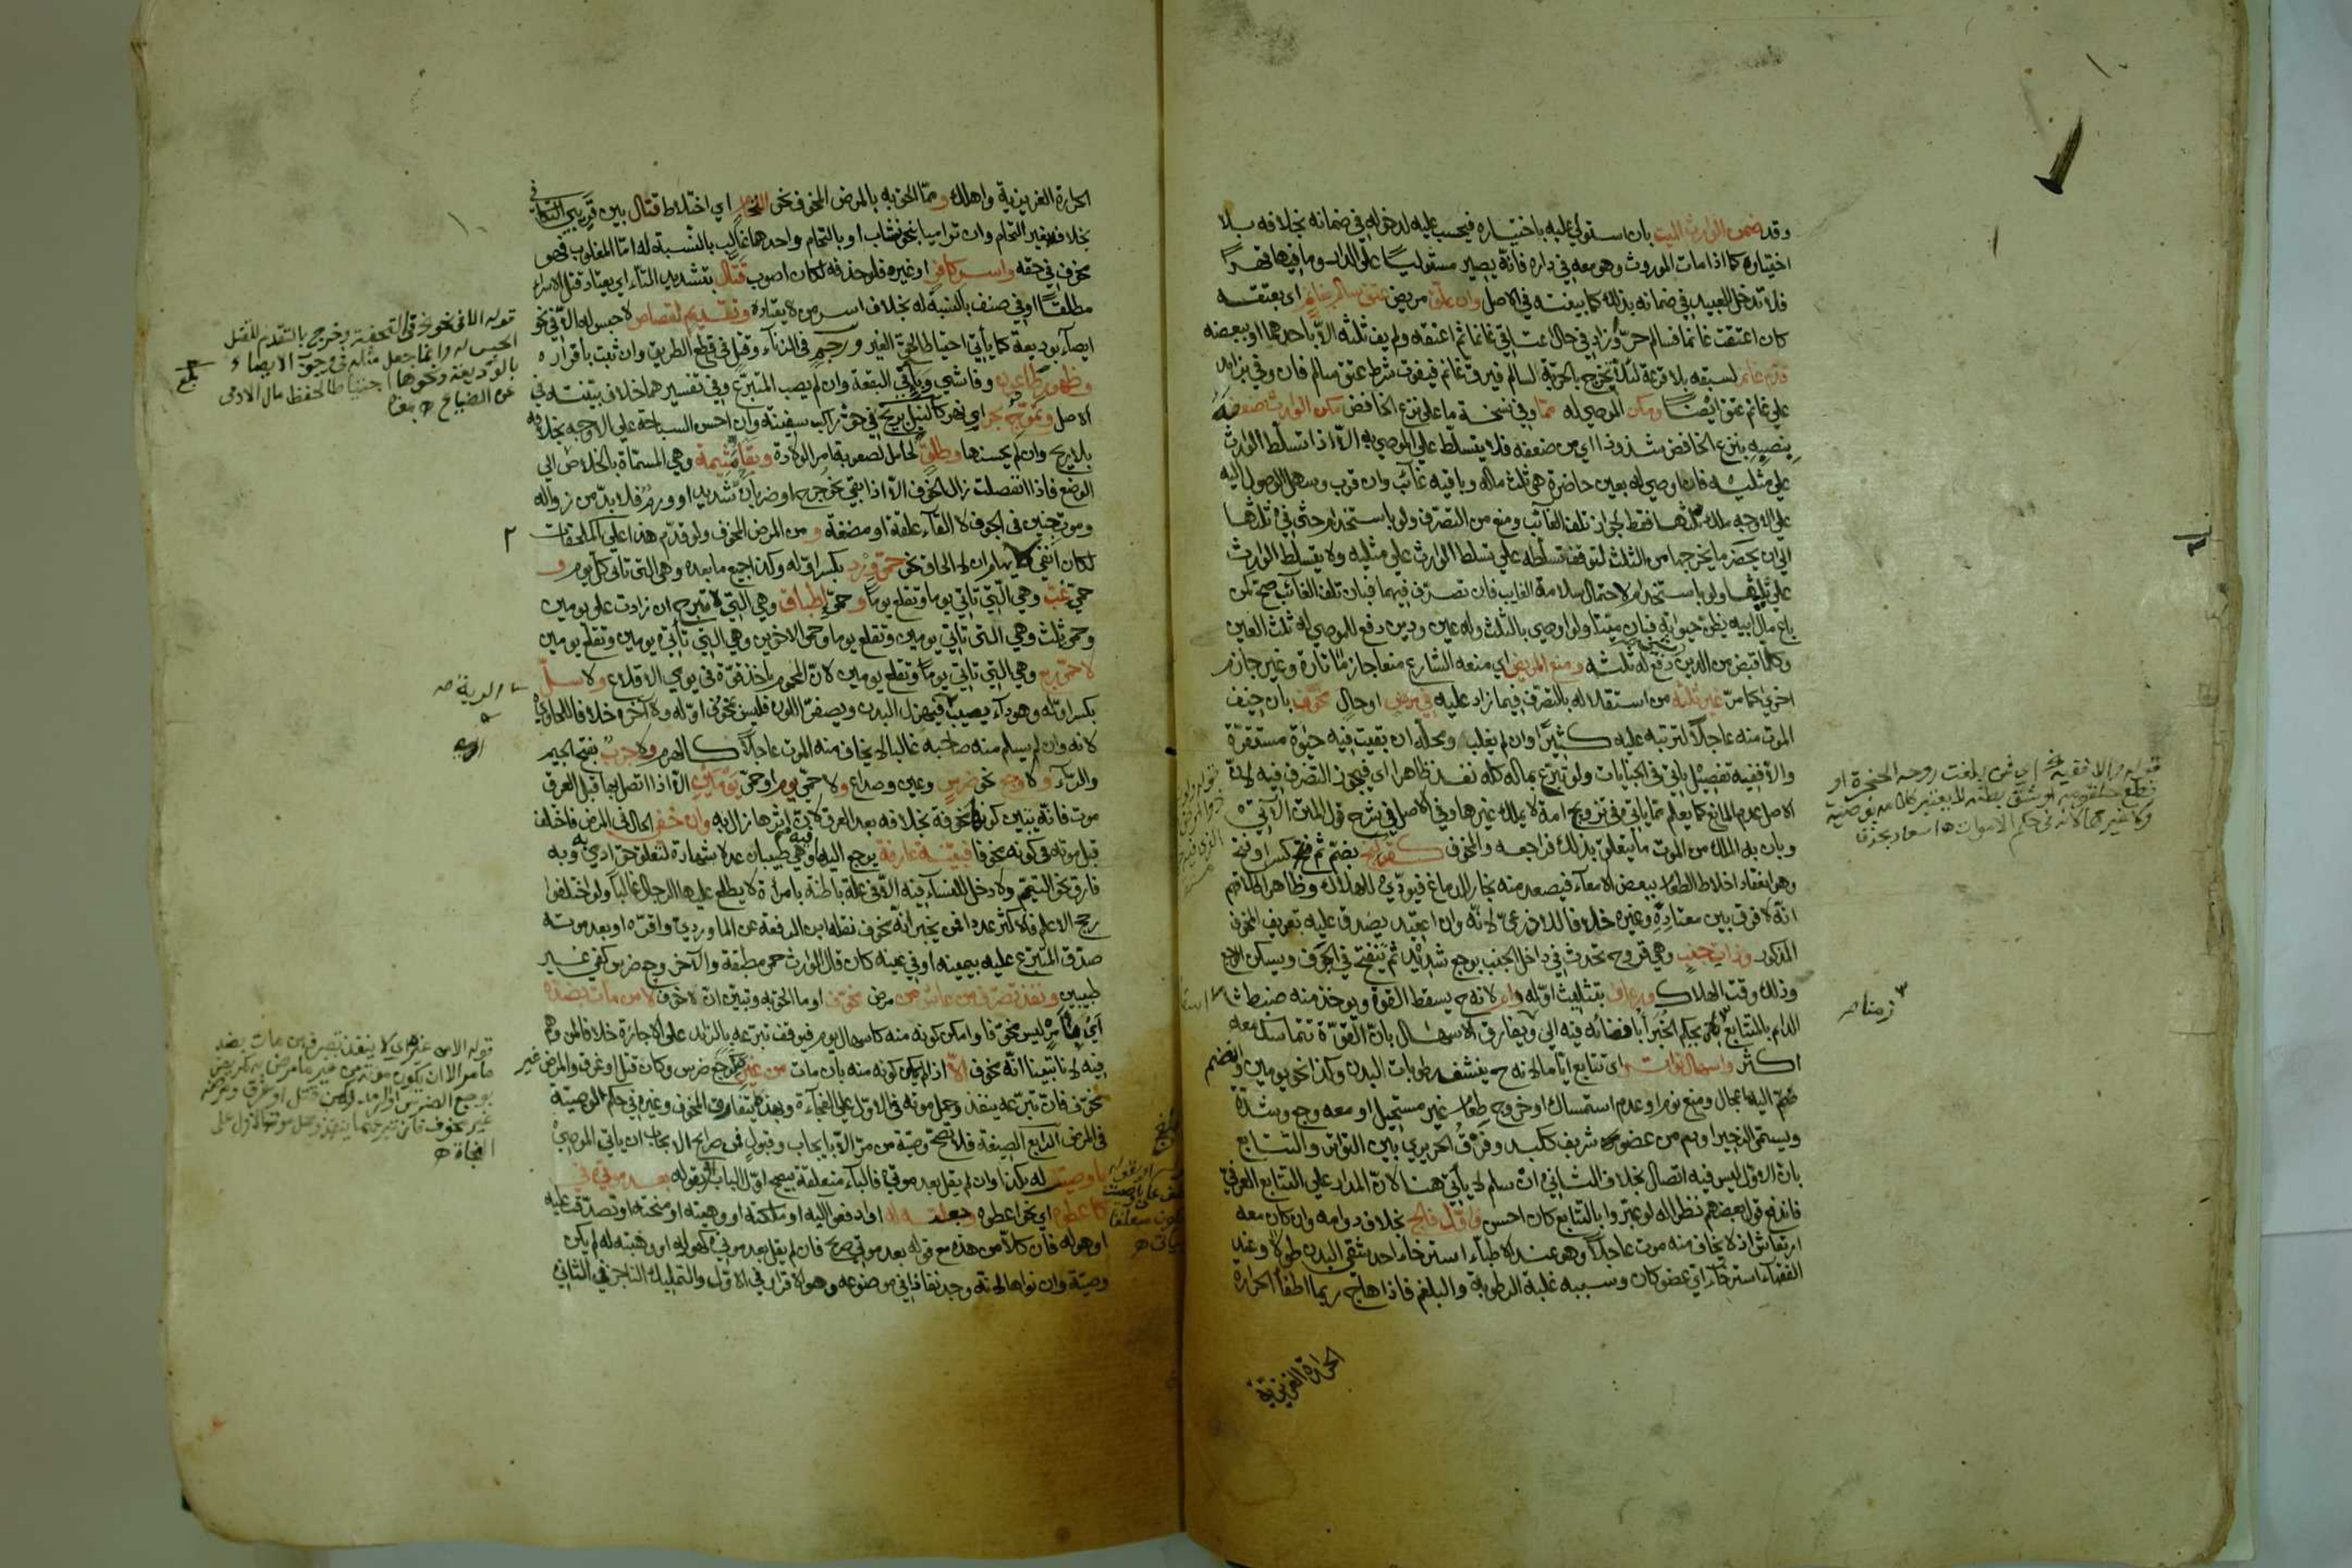 وقد ضمن الوارث الميت بان استولي عليه باختياره فيحسب عليه لدخوله في ضمانه بخلافه بلا
اختياره كما اذا مات الموروث وهو معه في داره فانه يصير مستوليا على الدار وما فيها قهرا
فلا تدخل العبيد في ضمانه بذلك كما بينته في الاصل وان علق مريض عتق سالم بغانم اي بعتقه
كان اعتقت غانما فسالم حر وزاد في حال عتاقي غانما ثم اعتقه ولم يف ثلثه الا باحدهما او ببعضه
قدم غانم لسبقه بلا قرعة لئلا تخرج بالحرية لسالم فيرق غانم فيفوت شرط عتق سالم فان وفي بزايد
علي غانم عتق ايضا وملك الموصي له مما وفي نسخة ما علي نزع الخافض ملك الوارث ضعفه
بنصبه بنزع الخافض شذوذا اي من ضعفه فلا يتسلط علي الموصي به الا اذا تسلط الوارث
علي مثليه فان اوصي له بعين حاضرة هي ثلث ماله وباقيه غائب وان قرب وسهل الوصول اليه
علي الاوجه ملك ثلثها فقط لجواز تلف الغائب ومنع من التصرف ولو باستخدام حتي في ثلثها
الي ان يحضر ما يخرجها من الثلث لتوقف تسلطه علي تسلط الوارث علي مثليه ولا يتسلط الوارث
علي ثلثيها ولو باستخدام لاحتمال سلامة الغايب فان تصرف فيهما فبان تلف الغائب صح كمن
باع مال ابيه يظن حيوته فبان ميتا ولو اوصي بالثلث وله عين ودين دفع للموصي له ثلث العين
وكلما قبض من الدين دفع له ثلثه ومنع المريض اي منعه الشارع منعا جازما تارة وغير جازم
اخري كما مر غير ثلثه من استقلاله بالتصرف فيما زاد عليه في مرض او حال مخوف بان خيف
الموت منه عاجلا لترتبه عليه كثيرا وان لم يغلب ومحله ان بقيت فيه حيوة مستقرة
والا ففيه تفصيل ياتي في الجنايات ولو تبرع بماله كله نفذ ظاهرا اي فيجوز التصرف فيه لان
الاصل عدم المانع كما يعلم مما ياتي في تزويج امة لا يملك غيرها وفي الاصل في شرح قول المتن الآتي
وبان به الملك من الموت ما يتعلق بذلك فراجعه والمخوف كقولنج بضم ثم فتح كسر او فتح
وهو انعقاد اخلاط الطعام ببعض الامعاء فيصعد منه بخار للدماغ فيؤدي للهلاك وظاهر كلامهم
انه لا فرق بين معتاده وغيره خلافا للاذرعي لانه وان اعتيد يصدق عليه تعريف المخوف
المذكور وذات جنب وهي قروح تحدث في داخل الجنب بوجع شديد ثم تنفتح في الجوف ويسكن الوجع
وذلك وقت الهلاك ورعاف بتثليث اوله دايم لانه ح يسقط القوة ويوخذ منه ضبط
الدايم بالمتتابع بافضائه فيه الي ويفارق الاسهال بان القوة تتماسك معه
اكثر واسهال تواتر اي تتابع اياما لانه ح ينشف رطوبات البدن وكذا نحو يومين وانضم
ضم اليه اعجال ومنع نوم او عدم استمساك او خروج طعام غير مستحيل او معه وجع وشدة
ويسمي الزحير او دم من عضو شريف ككبد وفرق الحريري بين التواتر والتتابع
بان الاول ليس فيه اتصال بخلاف الثاني ان سلم لا يأتي هنا لان المدار علي التتابع العرفي
فاندفع قول بعضهم نظرا له لو عبروا بالتتابع كان احسن واول فالج بخلاف دوامه وان كان معه
ارتعاش اذ لا يخاف منه موت عاجلا وهو عند الاطباء استرخاء احد شقي البدن طولا وعند
الفقهاء استرخاء اي عضو كان وسببه غلبة الرطوبة والبلغم فاذا هاج ربما اطفأ الحرارة
الحرارة الغريزية
قوله والا ففيه اي فمن بلغت روحه الحنجرة او
قطع حلقومه او شق بطنه لا يعتبر كلامه بوصية
ولا غيرها لانه في حكم الاموات ه اسعاد بحذف
الحرارة الغريزية واهلك ومما الحق به بالمرض المخوف نحو التحام اي اختلاط قتال بين قريبي التكافي
بخلافه بغير التحام وان تراميا بنحو نشاب او بالتحام واحدهما غالب بالنسبة له اما المغلوب فهو
مخوف في حقه واسر كافر او غيره فلو حذفه لكان اصوب قتال بتشديد التاء اي يعتاد قتل الاسراء
مطلقا او في صنف بالنسبة له بخلاف اسر من لا يعتاده وتقديم لقصاص لا حبس له الا في نحو
ايصاء بوديعة كما يأتي احتياطا لحق الغير ورجم في الزناء وقتل في قطع الطريق وان ثبت باقراره
وظهور طاعون وفاشي وباء في البقعة وان لم يصب المتبرع وفي تفسيرهما خلاف بينته في
الاصل وتموج بحر اي نهر كالنيل بريح في حق راكب سفينة وان احسن السباحة علي الاوجه بخلافه
بلا ريح وان لم يحسنها وطلق لحامل لصعوبة امر الولادة وبقاء مشيمة وهي المسماة بالخلاص الي
الوضع فاذا انفصلت زال الخوف الا اذا بقي نحو جرح او ضربان شديد او ورم فلا بد من زواله
وموت جنين في الجوف لا القاء علقة او مضغة ومن المرض المخوف ولو قدم هذا علي الملحقات
لكان انفي لايهام ان له الحاق نحو حمي ورد بكسر اوله وكذا جميع ما بعده وهي التي تاتي كل يوم و
حمي غب وهي التي تاتي يوما وتقلع يوما وحمي اطباق وهي التي لا تبرح ان زادت علي يومين
وحمي ثلث وهي التي تاتي يومين وتقلع يوما وحمي الاخوين وهي التي تأتي يومين وتقلع يومين
لا حمي ربع وهي التي تاتي يوما وتقلع يومين لان المحموم ياخذ قوة في يومي الاقلاع ولا سل
بكسر اوله وهو داء يصيب فيهزل البدن ويصفر اللون فليس بمخوف اوله ولا آخره خلافا للحاوي
لانه وان لم يسلم منه صاحبه غالبا لا يخاف منه الموت عاجلا كالهرم ولا جرب بفتح الجيم
والراء ولا وجع نحو ضرس وعين وصداع ولا حمي يوم او حمي يومين الا اذا اتصل بها قبل العرق
موت فانه يتبين كونها مخوفة بخلافه بعد العرق لان اثرها زال به وان خفي الحال في المرض فاختلف
قبل موته في كونه مخوفا فبفئة عارفة يرجع اليها وهي طبيبان عدلا شهادة لتعلق حق ادمي به وبه
فارق نحو التيمم ولا دخل للنساء فيه الا في علة باطنة بامرأة لا يطلع عليها الرجال غالبا ولو اختلفوا
رجح الاعلم فالاكثر عددا فمن يخبر انه مخوف نقله ابن الرفعة عن الماوردي واقره او بعد موته
صدق المتبرع عليه بيمينه او في عينه كان قال الوارث حمي مطبقة والآخر وجع ضرس كفي غير
طبيبين ونفذ تصرف من عاش من مرض مخوف او ما الحق به وتبين ان لا خوف لا من مات بضده
اي بمرض ليس مخوفا وامكن كونه منه كاسهال يوم فيوقف تبرعه بالزائد علي الاجازة خلافا لمن وهم
فيه لانا تبينا انه مخوف الا اذا لم يمكن كونه منه بان مات من غيره كوجع ضرس وكان قتل او غرق والمرض غير
مخوف فان تبرعه ينفذ وحمل موته في الاول علي الفجأة وبهذا يتفارق المخوف وغيره في حكم الوصية
في المرض الرابع الصيغة فلا تصح وصية من مر الا بايجاب وقبول فمن صرايح الايجاب ان ياتي الموصي
باوصيت له بكذا وان لم يقل بعد موتي فالباء متعلقة بيصح اول الباب او بقوله بعد موتي في
كاعطوه اي نحو اعطوه وجعلته له او ادفعوا اليه او ملكته او وهبته او منحته او تصدقت عليه
او هو له فان كلا من هذه مع قوله بعد موتي صريح فان لم يقل بعد موتي كهو له او وهبته له لم يكن
وصية وان نواها لانه وجد نفاذا في موضوعه وهو الاقرار في الاول والتمليك الناجز في الثاني
قوله الا في نحو نحوه في التحفة وخرج بالتقديم للقتل
الحبس له وانما جعل مثله في وجوب الايصاء
بالوديعة ونحوها احتياطا لحفظ مال الادمي
عن الضياع ه
قوله الا من غيره اي لا ينفذ تصرف من مات بضد
ما مر الا ان يكون موته من غير ما مرض به كمريض
بوجع الضرس
غير مخوف فان تبرعه ينفذ وحمل موته الاول على
الفجاة ه